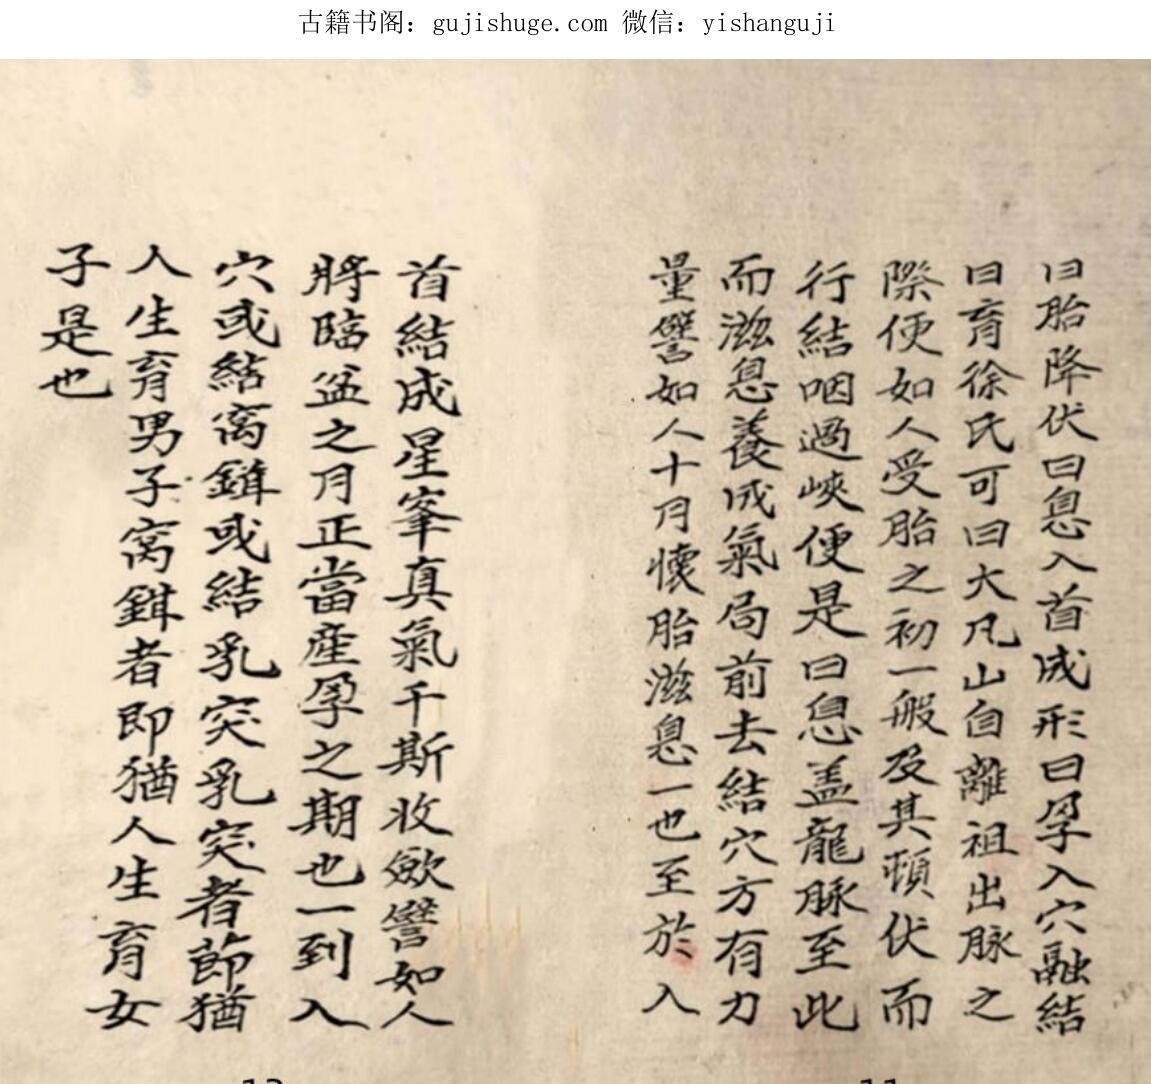 古籍书阁：gujishuge.com 微信：yishanguji
曰胎降伏曰息入首成形曰孕入穴融結
曰育徐氏可曰大凡山自離祖出脉之
際便如人受胎之初一般及其頓伏而
行結咽過峽便是曰息盖龍脉至此
而滋息養成氣局前去結穴方有力
量譬如人十月懷胎滋息一也至於入
首結成星峯真氣千斯收歛譬如人
將臨盆之月正當産孕之期也一到入
穴或結窩鉗或結乳突乳突者節猶
人生育男子窩鉗者即猶人生育女
子是也